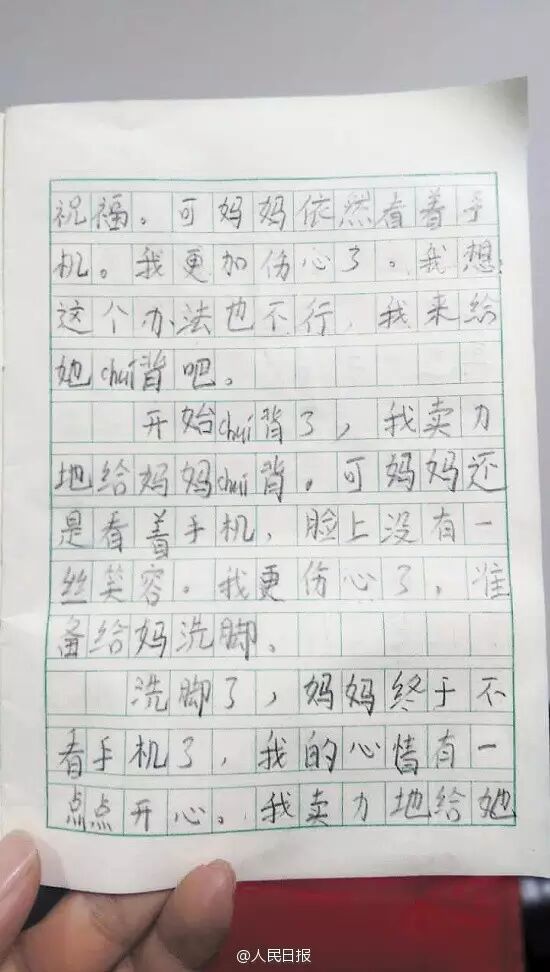 祝福。可妈妈依然看着手
机。我更加伤心了。我想
这个办法也不行，我来给
她chuí背吧。
开始chuí背了，我卖力
地给妈妈chuí背。可妈妈还
是看着手机，脸上没有一
丝笑容。我更伤心了，准
备给妈洗脚。
洗脚了，妈妈终于不
看手机了，我的心情有一
点点开心。我卖力地给她
@人民日报